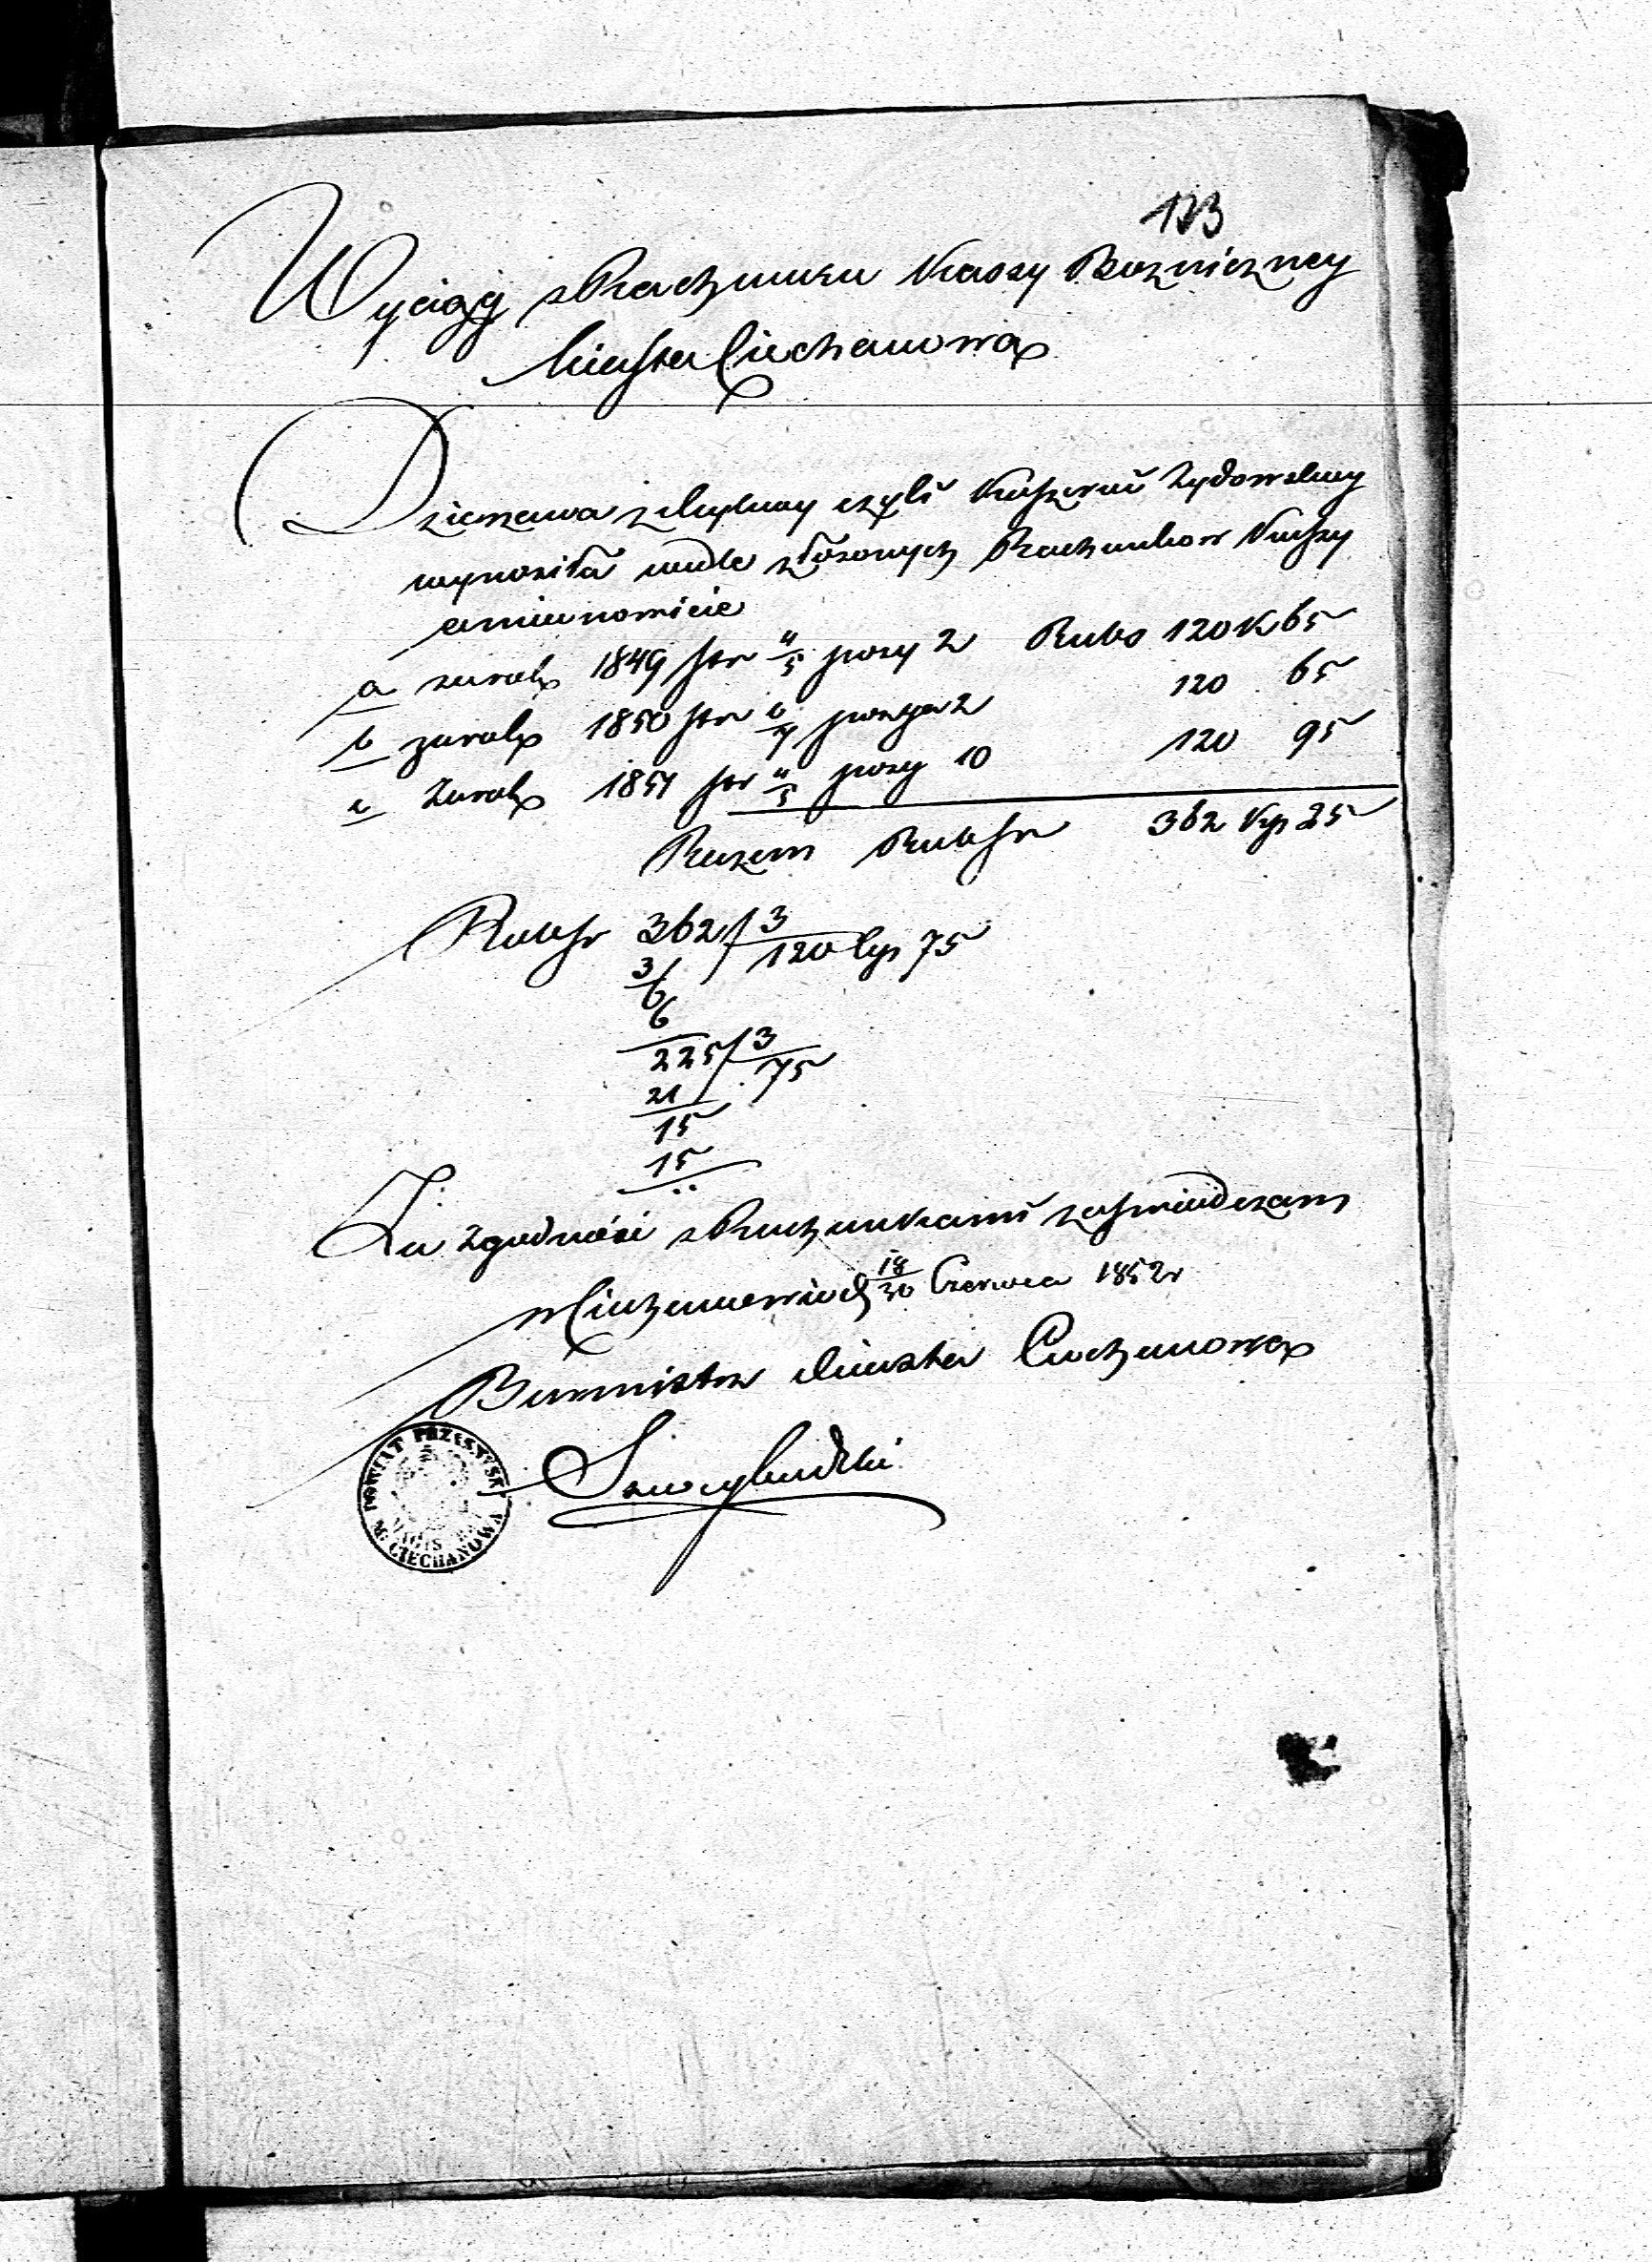 133
Wyciąg z Rachunku Kassy Bozniczney
Miasta Ciechanowa
Dzierzawa czyli Koszerne Zydowskiey
wynosiła wedle złożonych Rachunków Kassy
a mianowicie
a za rok 1849 str 4/5 pozy 2 Rubs 120 K 65
b za rok 1850 str 6/7 pozycya 2 120 65
c za rok 1851 str 4/5 pozy 10 120 95
Razem Rubsr 362 Kop 25
Rubsr 362 / 3
3 120 kop 75
6
6
225 / 3
21 75
15
15
..
Za zgodność z Rachunkami zaświadczam
w Ciechanowie d 18/30 Czerwca 1852 r
Burmistrz Miasta Ciechanowa
POWIAT PRZASNYSKI
M. CIECHANOWA